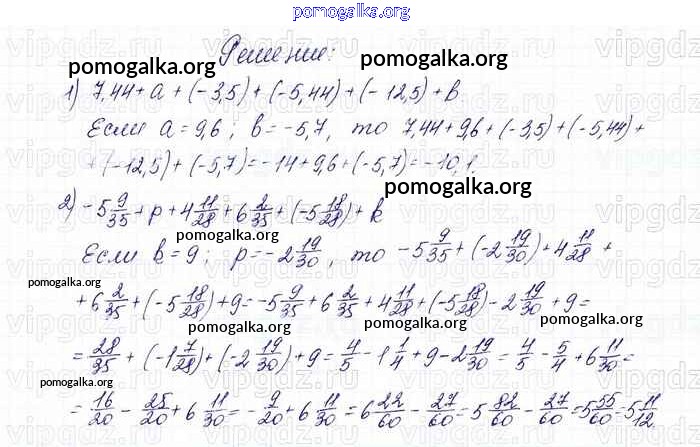 pomogalka.org
Решение:
pomogalka.org pomogalka.org
1) 7,44 + a + (-3,5) + (-5,44) + (-12,5) + b
Если a = 9,6; b = -5,7, то 7,44 + 9,6 + (-3,5) + (-5,44) +
+ (-12,5) + (-5,7) = -14 + 9,6 + (-5,7) = -10,1.
pomogalka.org
2) -5 9/35 + p + 4 11/28 + 6 2/35 + (-5 18/28) + k
pomogalka.org
Если k = 9; p = -2 19/30, то -5 9/35 + (-2 19/30) + 4 11/28 +
pomogalka.org
+ 6 2/35 + (-5 18/28) + 9 = -5 9/35 + 6 2/35 + 4 11/28 + (-5 18/28) - 2 19/30 + 9 =
pomogalka.org pomogalka.org pomogalka.org
= 28/35 + (-1 7/28) + (-2 19/30) + 9 = 4/5 - 1 1/4 + 9 - 2 19/30 = 4/5 - 5/4 + 6 11/30 =
pomogalka.org
= 16/20 - 25/20 + 6 11/30 = -9/20 + 6 11/30 = 6 22/60 - 27/60 = 5 82/60 - 27/60 = 5 55/60 = 5 11/12
pomogalka.org pomogalka.org